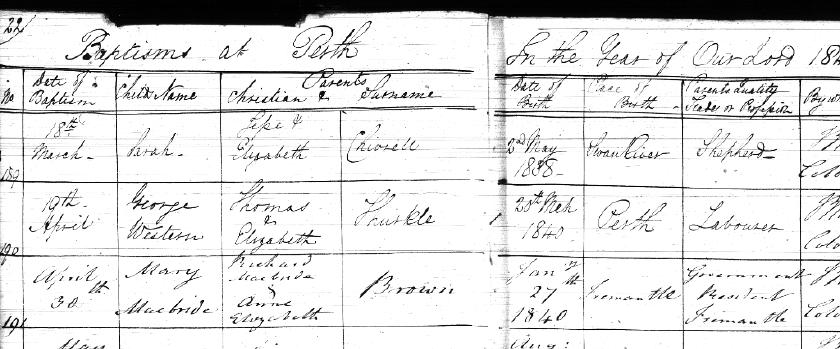 22
Baptisms at Perth
In the Year of Our Lord 184
No
Date of Baptism
Child Name
Parents
Christian & Surname
Date of Birth
Place of Birth
Parents Quality Trade or Profession
By w
18th March
Sarah
&
Elizabeth
2nd May 1838
Swan River
Shepherd
Colo
189
19th April
George Western
Thomas & Elizabeth
Thurkle
20th Mch 1840
Perth
Labourer
Colo
190
April 30th
Mary Macbride
Richard Macbride & Anne Elizabeth
Brown
Jany 27th 1840
Fremantle
Government Resident Fremantle
Colo
191
May
Aug: